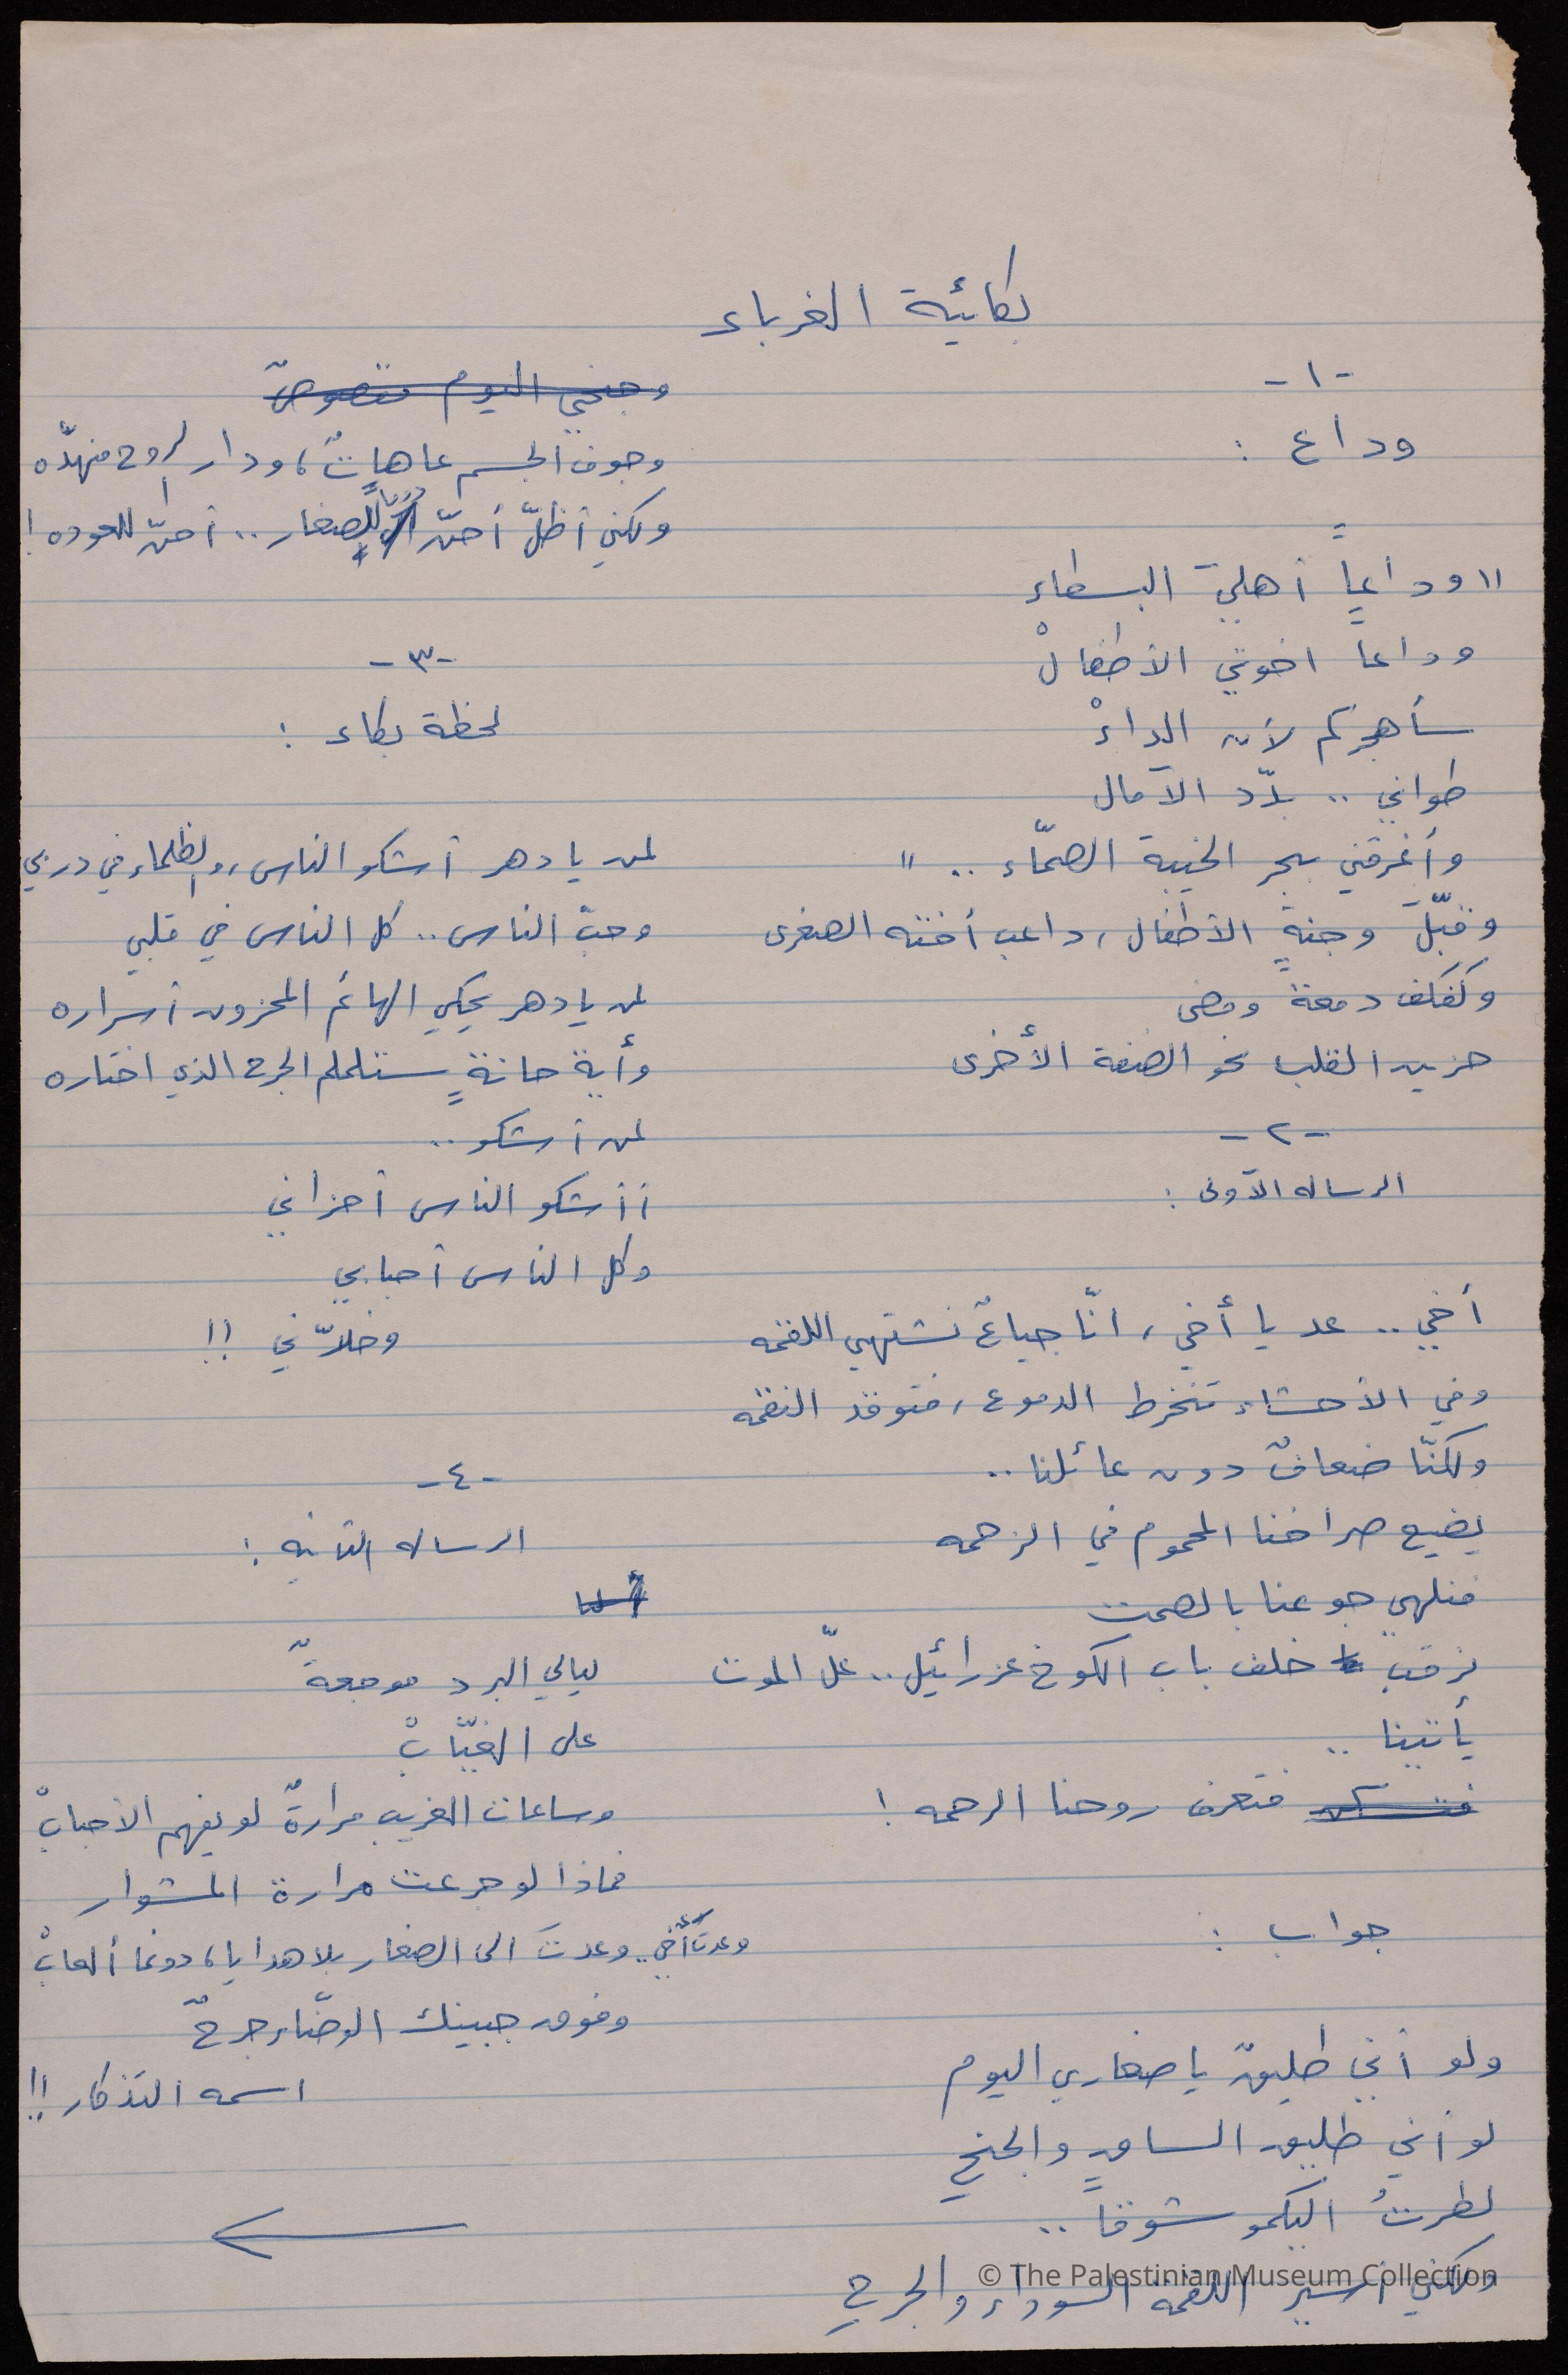 بكائية الغرباء
-١-
وداع :
"وداعاً أهليَ البسطاء
وداعاً اخوتي الأطفالْ
سأهجركم لأن الداءْ
طواني .. بدّد الآمال
وأغرقني ببحر الخيبة الصمّاء .. "
وقبّلَ وجنةِ الأطفال، داعب أخته الصغرى
وكفكف دمعة ومضى
حزين القلب نحو الضفة الأخرى
-٢-
الرساله الأولى :
أخي .. عد يا أخي، انّا جياعٌ نشتهي اللقمه
وفي الأحشاء تنخرط الدموع، فتوقد النقمه
ولكنّا ضعافٌ دون عائلنا ..
يضيع صراخنا المحموم في الزحمه
فنلهي جوعنا بالصمت
نرقب خلف باب الكوخ عزرائيل .. علّ الموت
يأتينا ..
فتعرف روحنا الرحمه !
جواب :
ولو أني طليقٌ يا صغاري اليوم
لو أني طليق الساقِ والجنحِ
لطرتُ اليكمو شوقاً ..
ولكني أسير اللقمة السوداء والجرحِ
وجنحي اليوم مقصوصٌ
وجوف الجسم عاهاتٌ، ودار الروح منهدّه
ولكني أظلّ أحنّ للصغار .. أحنّ للعوده !
-٣-
لحظة بكاء :
لمن يا دهر أشكو الناس، والظلماء في دربي
وحبّ الناس .. كل الناس في قلبي
لمن يا دهر يحكي الهائم المحزون أسراره
وأية حانةٍ ستلملم الجرح الذي اختاره
لمن أشكو ..
أأشكو الناس أحزاني
وكل الناس أحبابي
وخلاّني !!
-٤-
الرساله الثانيه :
ليالي البرد موجعةٌ
على الغيّابْ
وساعات الغريب مرارةٌ لو يفهم الأحبابْ
فماذا لو جرعت مرارة المشوار
وعدتَ أخي .. وعدتَ الى الصغار بلا هدايا، دونما ألعابْ
وفوق جبينك الوضّاء جرحٌ
اسمه التذكار !!
© The Palestinian Museum Collection